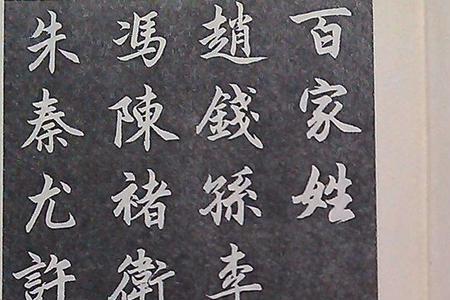 百家姓
趙錢孫李
馮陳褚衛
朱秦尤許